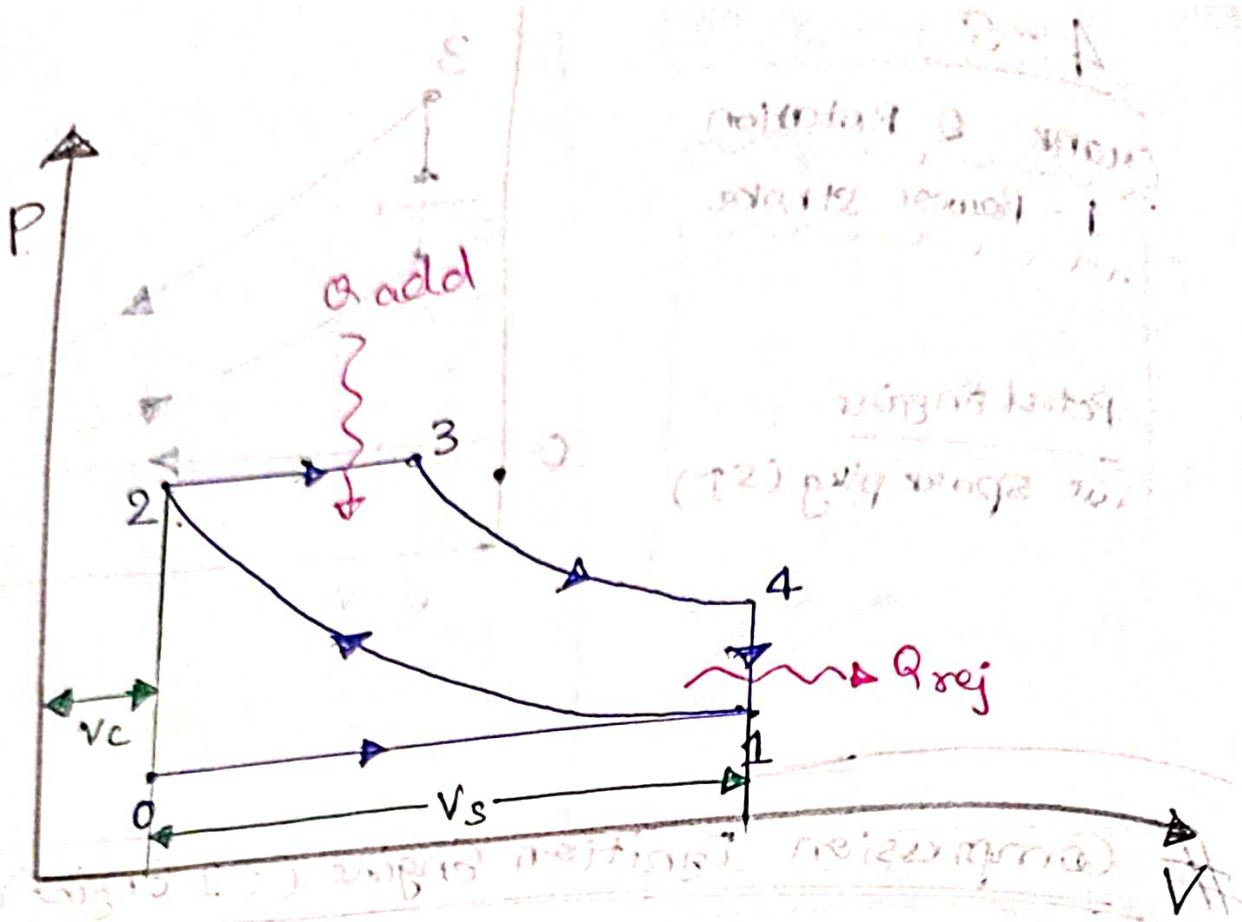 P
Q add
3
2
4
Q rej
Vc
1
0
Vs
V